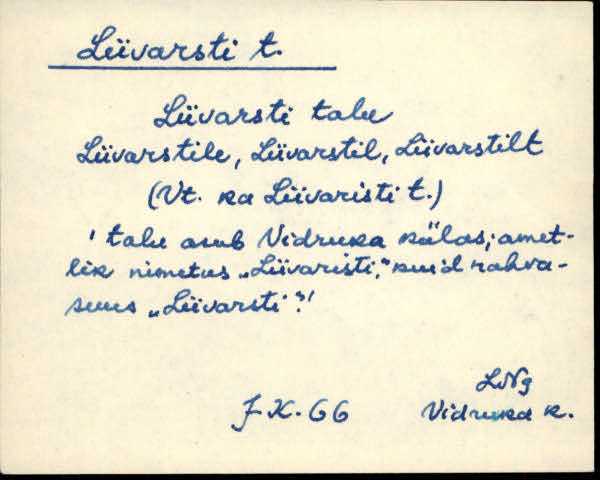 Liivarsti t.
Liivarsti talu
Liivarstile, Liivarstil, Liivarstilt
(Vt. ka Liivaristi t.)
' talu asub Vidruka külas; amet-
lik nimetus „Liivaristi,” kuid rahva-
suus „Liivarsti”.'
LNg
7 X. 66 Vidruka k.